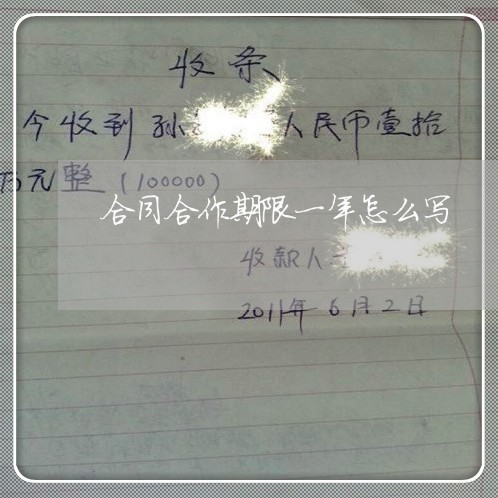 收条
今收到孙 人民币壹拾
万元整(100000)
合同合作期限一年怎么写
收款人
2011年6月2日